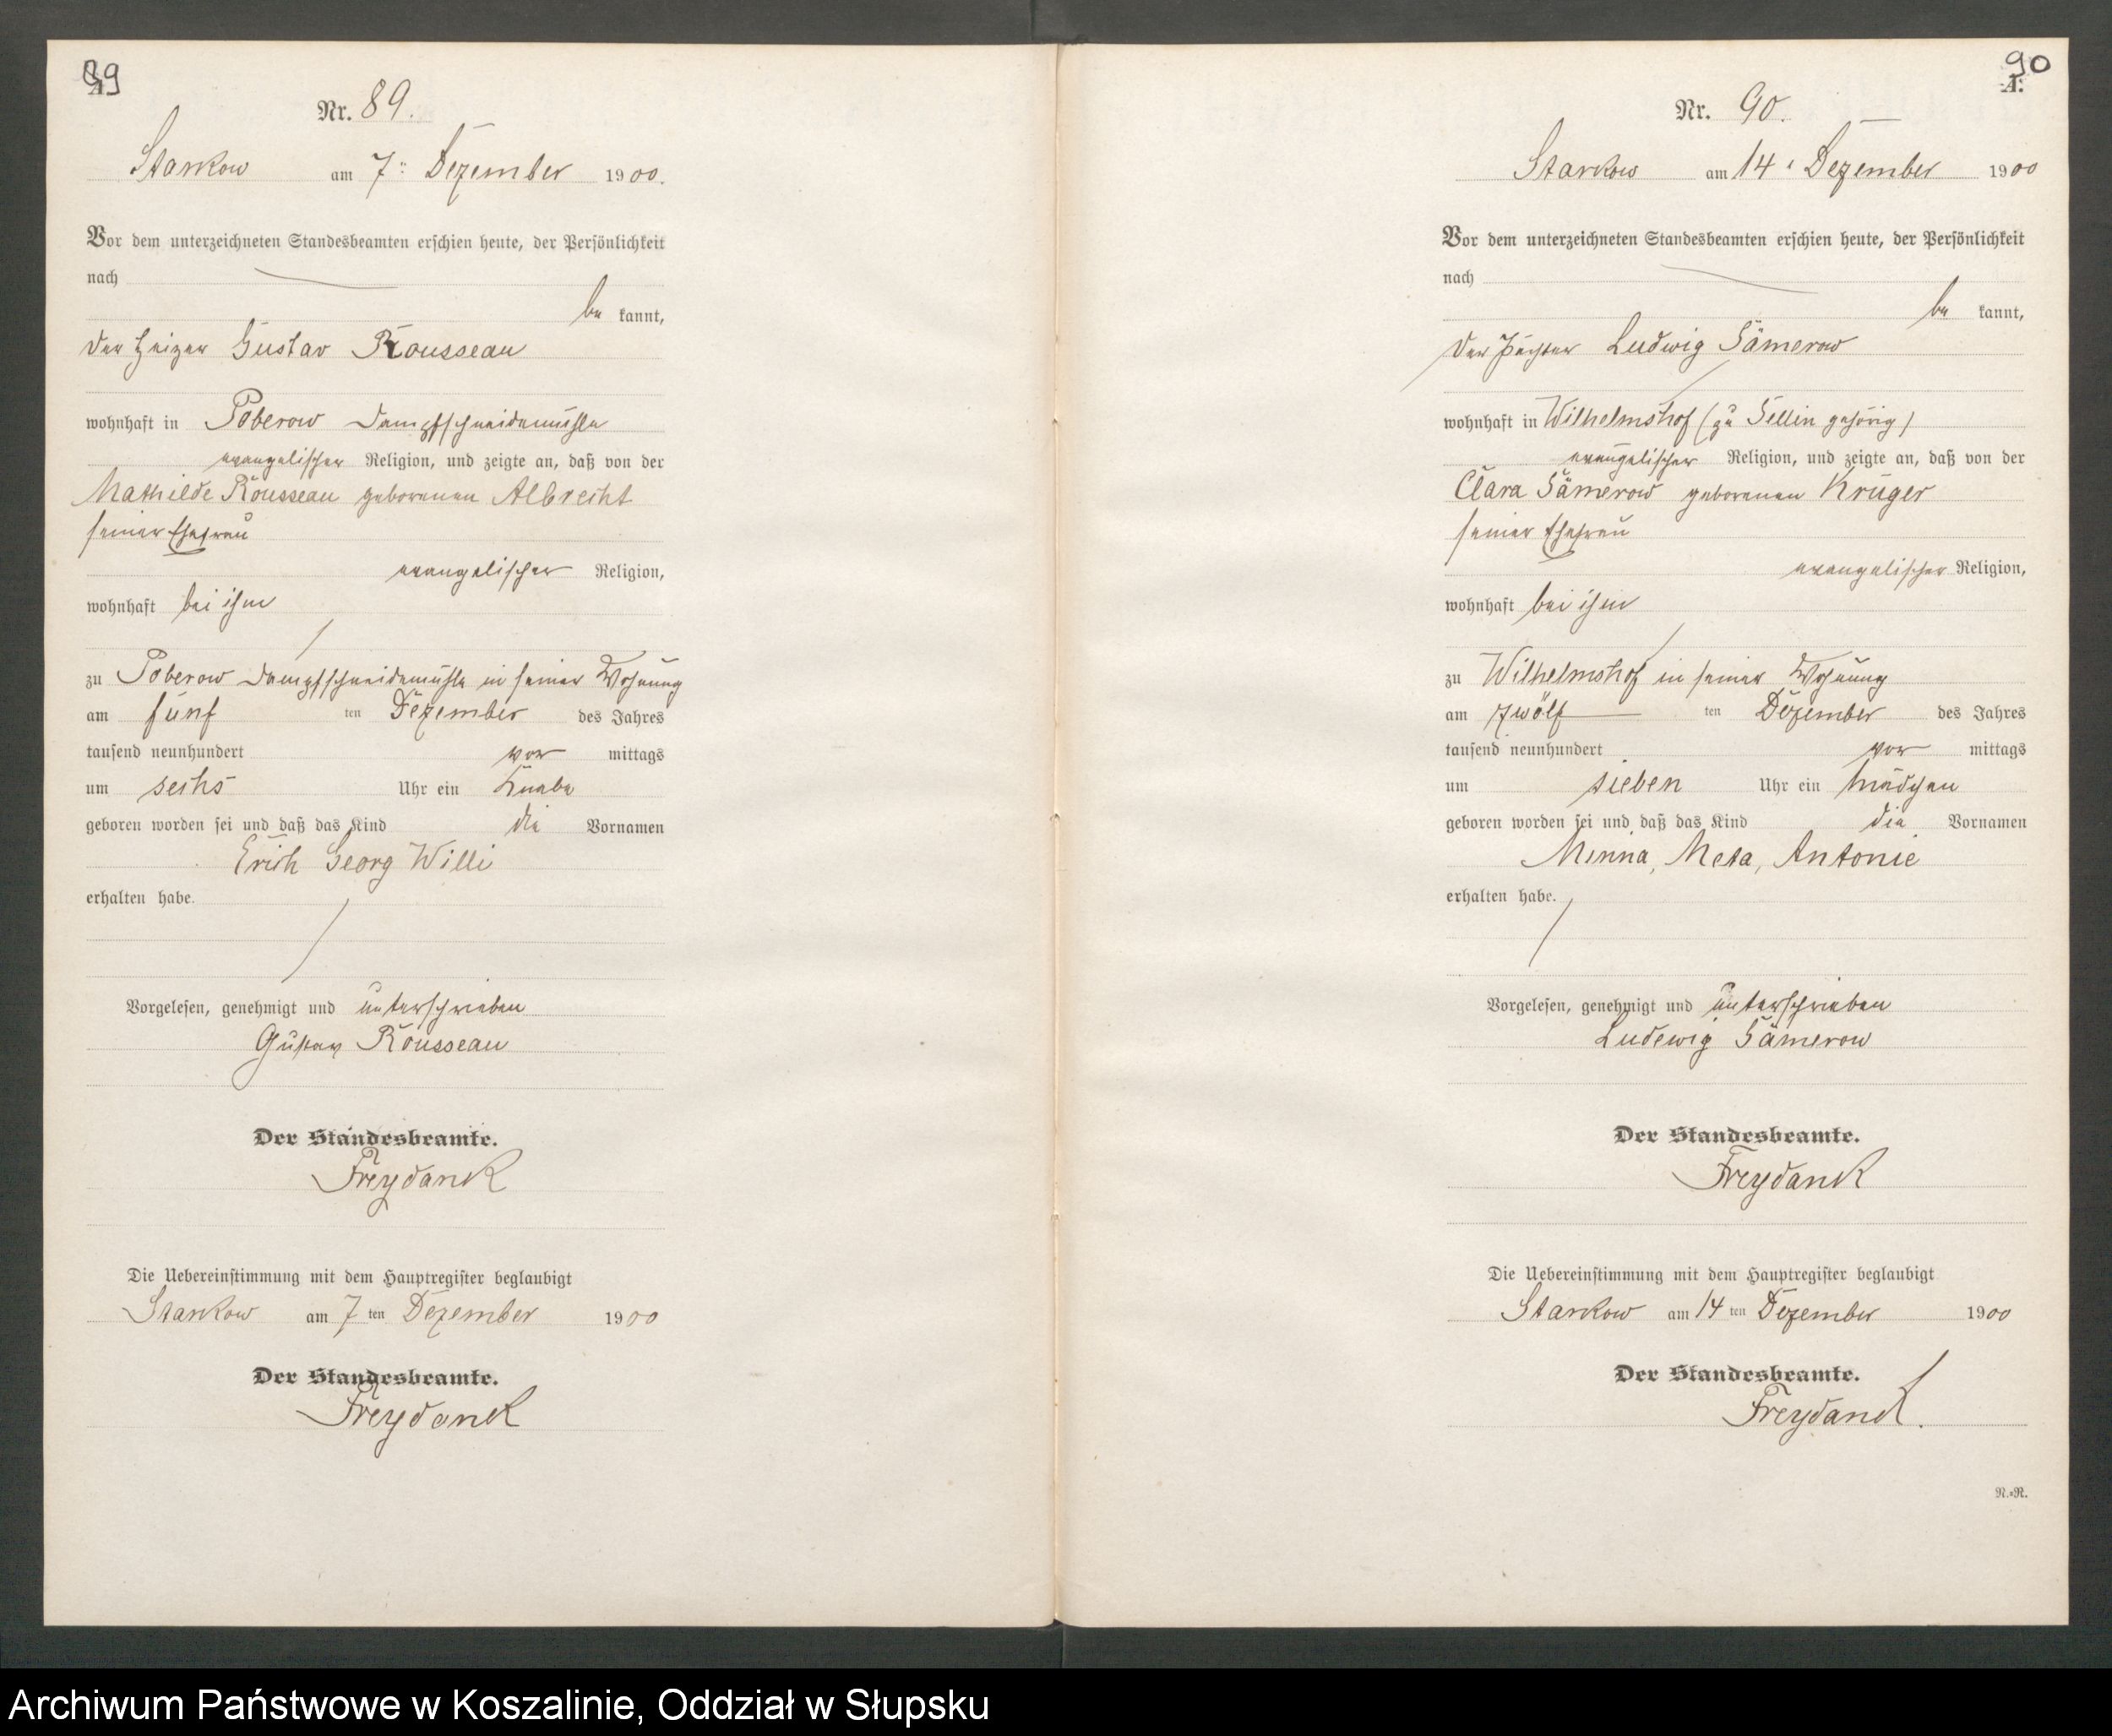 89
Nr. 89.
Starkow am 7ten Dezember 1900.
Vor dem unterzeichneten Standesbeamten erschien heute, der Persönlichkeit
nach
be kannt,
der Heizer Gustav Rousseau
wohnhaft in Poberow Dampfschneidemühle
evangelischer Religion, und zeigte an, daß von der
Mathilde Rousseau geborenen Albrecht
seiner Ehefrau
evangelischer Religion,
wohnhaft bei ihm
zu Poberow Dampfschneidemühle in seiner Wohnung
am fünf ten Dezember des Jahres
tausend neunhundert vor mittags
um sechs Uhr ein Knabe
geboren worden sei und daß das Kind die Vornamen
Erich Georg Willi
erhalten habe.
Vorgelesen, genehmigt und unterschrieben
Gustav Rousseau
Der Standesbeamte.
Freydank
Die Uebereinstimmung mit dem Hauptregister beglaubigt
Starkow am 7 ten Dezember 1900
Der Standesbeamte.
Freydank
90
A.
Nr. 90.
Starkow am 14 Dezember 1900
Vor dem unterzeichneten Standesbeamten erschien heute, der Persönlichkeit
nach
be kannt,
der Pächter Ludwig Sämerow
wohnhaft in Wilhelmshof (zu Sellin gehörig)
evangelischer Religion, und zeigte an, daß von der
Clara Sämerow geborenen Krüger
seiner Ehefrau
evangelischer Religion,
wohnhaft bei ihm
zu Wilhelmshof in seiner Wohnung
am zwölf ten Dezember des Jahres
tausend neunhundert vor mittags
um sieben Uhr ein Mädchen
geboren worden sei und daß das Kind die Vornamen
Minna, Meta, Antonie
erhalten habe.
Vorgelesen, genehmigt und unterschrieben
Ludewig Sämerow
Der Standesbeamte.
Freydank
Die Uebereinstimmung mit dem Hauptregister beglaubigt
Starkow am 14 ten Dezember 1900
Der Standesbeamte.
Freydank.
N.=R.
Archiwum Państwowe w Koszalinie, Oddział w Słupsku